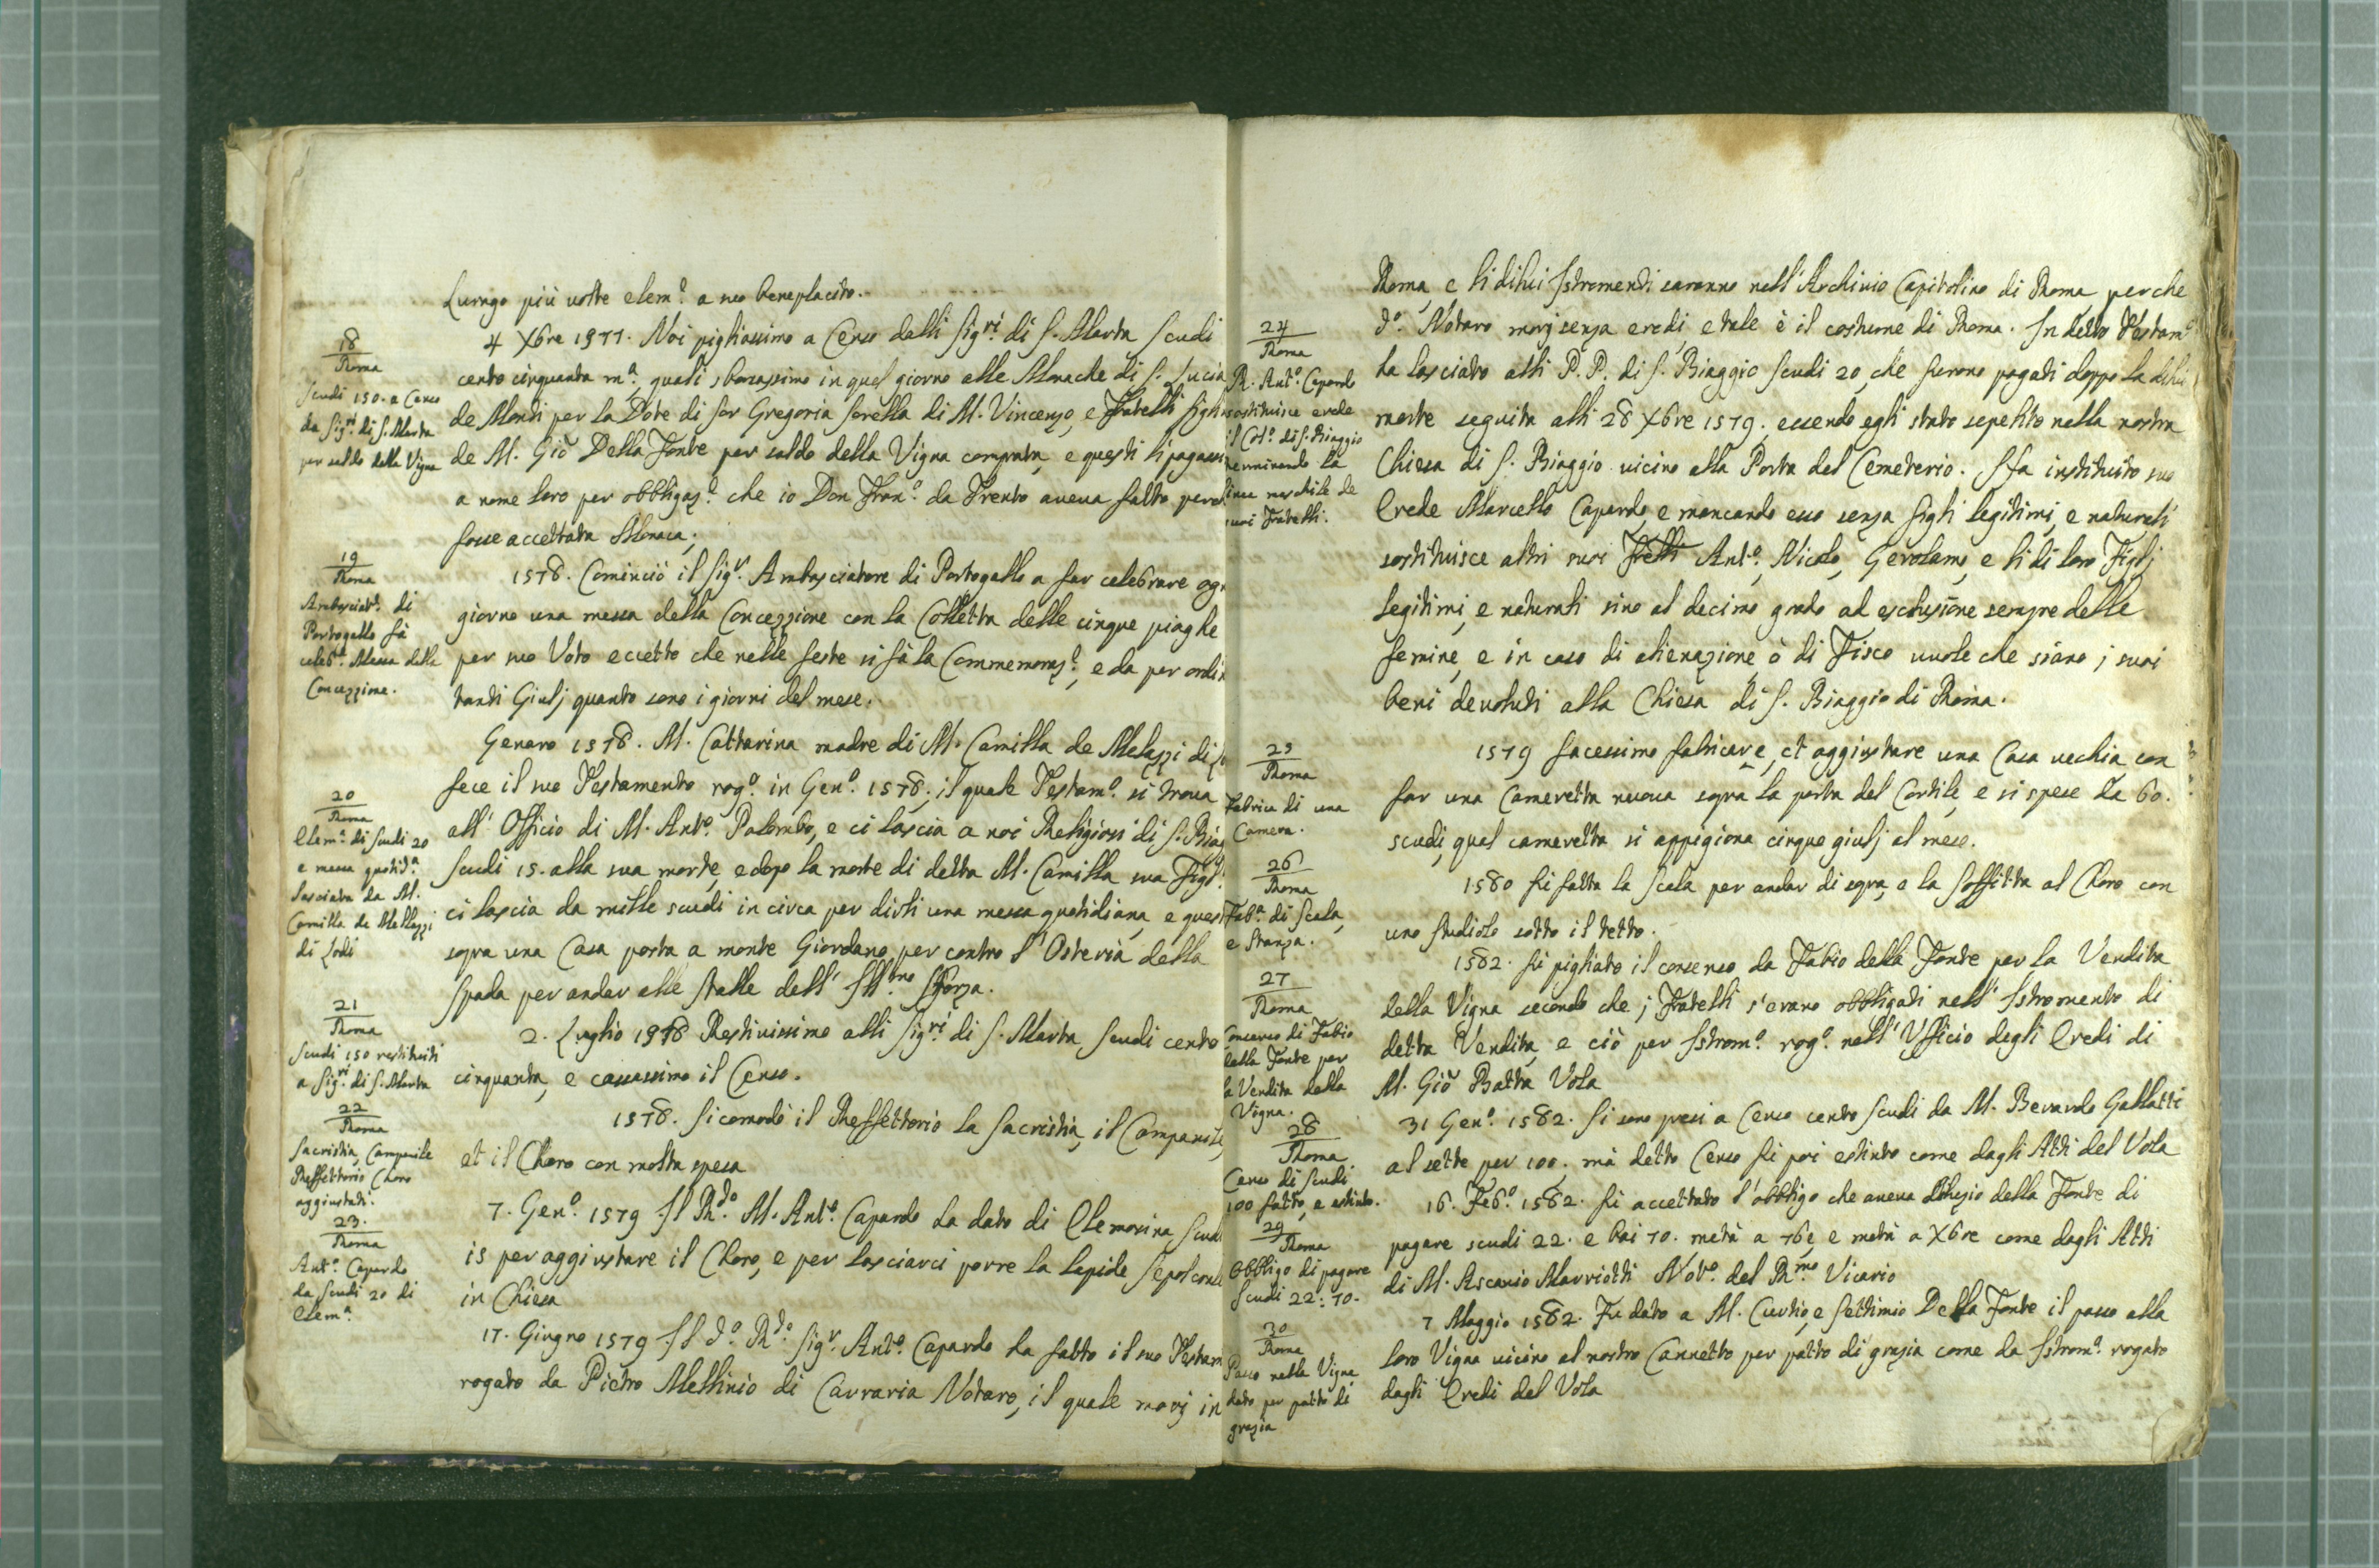 Lurago più volte elem.ª a suo beneplacito.
18
Roma
Scudi 150. a Censo
da Sig.ri di S. Marta
per saldo della Vigna
4 Xbre 1577. Noi pigliassimo a Censo dalli Sig.ri di S. Marta Scudi
cento cinquanta m.ª, quali sborsassimo in quel giorno alle Monache di S. Lucia
de Monti per la Dote di Sor Gregoria sorella di M. Vincenzo, e Fratelli figli
de M. Giò Della Fonte per saldo della Vigna comprata, e questi li pagassi
a nome loro per obbligaz.e che io Don Fran.º da Trento aveva fatto perch
fosse accettata Monaca;
19
Roma
Ambasciat.e di
Portogallo fà
celeb.e Messa della
Concezzione.
1578. Cominciò il Sig.r Ambasciatore di Portogallo a far celebrare ogn
giorno una messa della Concezzione con la Colletta delle cinque piaghe
per suo Voto eccetto che nelle feste si fà la Commemoraz.e, e da per ordin
tanti Giulj quanto sono i giorni del mese.
20
Roma
Elem.ª di Scudi 20
e messa quotid.ª
lasciata da M.
Camilla de Melazzi
di Lodi
Genaro 1578. M. Cattarina madre di M. Camilla de Melazzi di Lo
fece il suo Testamento rog.º in Gen.º 1578; il quale Testam.º si trova
all' Officio di M. Ant.º Palombo, e ci lascia a noi Religiosi di S. Biag
Scudi 15. alla sua morte, e dopo la morte di detta M. Camilla sua Figl.ª
ci lascia da mille scudi in circa per dirli una messa quotidiana, e quest
sopra una Casa posta a monte Giordano per contro l' Osteria della
Spada per andar alle stalle dell' Ill.mo Sforza.
21
Roma
Scudi 150 restituiti
a Sig.ri di S. Marta
2. Luglio 1978 Restituissimo alli Sig.ri di S. Marta Scudi cento
cinquanta, e cassassimo il Censo.
22
Roma
Sacristia, Campanile
Reffettorio Choro
aggiustati.
1578. Si comodò il Reffettorio la Sacristia, il Campanile,
et il Choro con molta spesa
23.
Roma
Ant.º Capardo
da Scudi 20 di
Elem.ª
7. Gen.º 1579 Il R.do M. Ant.º Capardo ha dato di Elemosina Scudi
15 per aggiustare il Choro, e per lasciarci porre la lapide Sepolcrale
in Chiesa
17. Giugno 1579 Il d.º R.do Sig.r Ant.º Capardo ha fatto il suo Testam
rogato da Pietro Mellinio di Carraria Notaro, il quale morj in
Roma, e li di lui Istromenti saranno nell' Archivio Capitolino di Roma perche
24
Roma
R. Ant.º Capardo
sostituisce erede
il Col.º di S. Biaggio
terminando la
linea maschile de
suoi Fratelli.
d.º Notaro morj senza eredi, e tale è il costume di Roma. In detto Testam.º
ha lasciato alli P.P. di S. Biaggio Scudi 20, che furono pagati doppo la di lui
morte seguita alli 28 Xbre 1579, essendo egli stato sepelito nella nostra
Chiesa di S. Biaggio vicino alla Porta del Cemeterio. Hà instituito suo
Erede Marcello Capardo, e mancando esso senza figli legitimi, e naturali
sostituisce altri suoi Frelli Ant.º, Nicolo, Gerolamo, e li di loro Figlj
legitimi, e naturali sino al decimo grado ad esclusione sempre delle
femine, e in caso di alienazione ò di Fisco vuole che siano j suoi
beni devoluti alla Chiesa di S. Biaggio di Roma.
25
Roma
Fabrica di una
Camera.
1579 facessimo fabricare, et aggiustare una Casa vechia con
far una Cameretta nuova sopra la porta del Cortile, e si spese da 60.
scudi, qual cameretta si appigiona cinque giulj al mese.
26
Roma
Fab.ª di Scala,
e Stanza.
1580 fù fatta la Scala per andar di sopra, e la Soffitta al Choro con
uno studiolo sotto il tetto.
27
Roma
Consenso di Fabio
della Fonte per
la Vendita della
Vigna.
1582. fù pigliato il consenso da Fabio della Fonte per la Vendita
della Vigna secondo che j Fratelli s' erano obbligati nell' Istromento di
detta Vendita, e ciò per Istrom.º rog.º nell' Ufficio degli Eredi di
M. Giò Batta Vola
28
Roma
Censo di Scudi
100 fatto, e estinto.
31 Gen.º 1582. Si sono presi a Censo cento Scudi da M. Berardo Gallatti
al sette per 100. mà detto Censo fù poi estinto come dagli Atti del Vola
29
Roma
Obbligo di pagare
Scudi 22:70.
16. Feb.º 1582. fù accettato l' obbligo che aveva della Fonte di
pagare scudi 22. e bai 70. metà a 7bre, e metà a Xbre come dagli Atti
di M. Ascanio Marriotti Not.º del R.mo Vicario
30
Roma
Passo nella Vigna
dato per patto di
grazia
7 Maggio 1582. Fu dato a M. Curtio, e Settimio Della Fonte il passo alla
loro Vigna vicino al nostro Cannetto per patto di grazia come da Istrom.º rogato
dagli Eredi del Vola